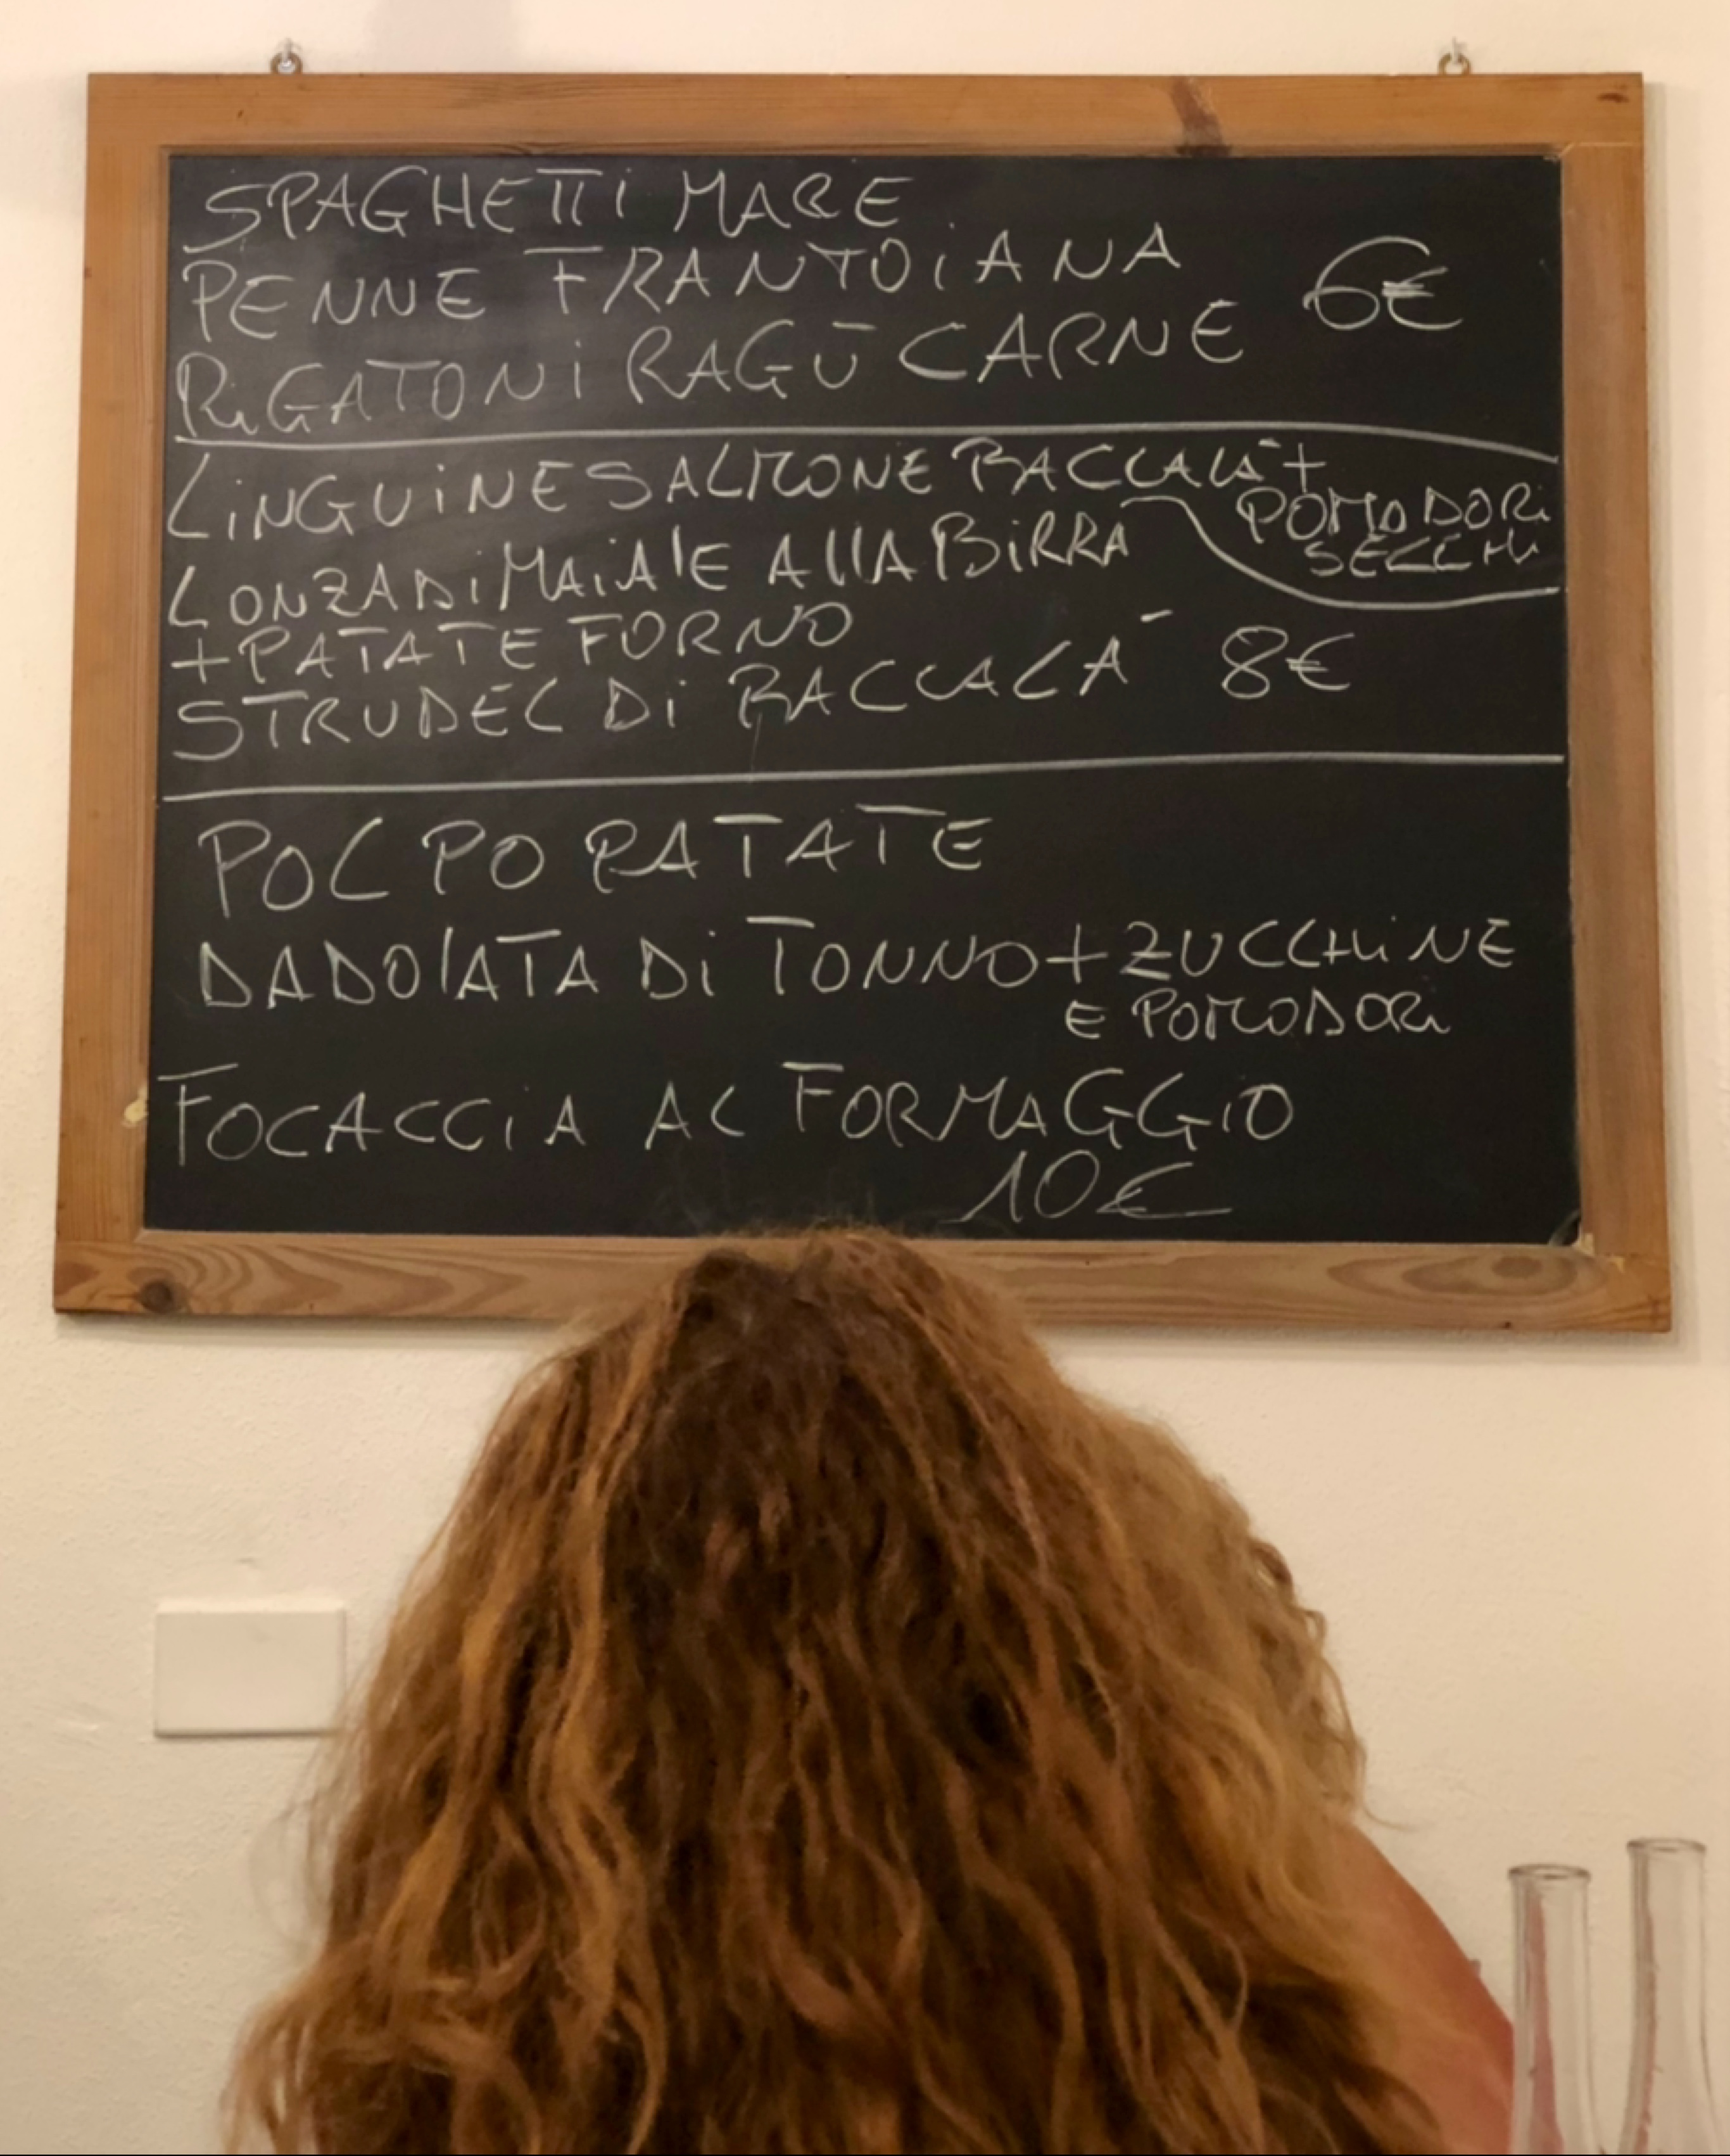 SPAGHETTI MARE
PENNE FRANTOIANA
RIGATONI RAGÙ CARNE 6€
LINGUINE SALMONE BACCALÀ +
POMODORI
SECCHI
LONZA DI MAIALE ALLA BIRRA
+ PATATE FORNO
STRUDEL DI BACCALÀ 8€
POLPO PATATE
DADOLATA DI TONNO + ZUCCHINE
E POMODORI
FOCACCIA AL FORMAGGIO
10€